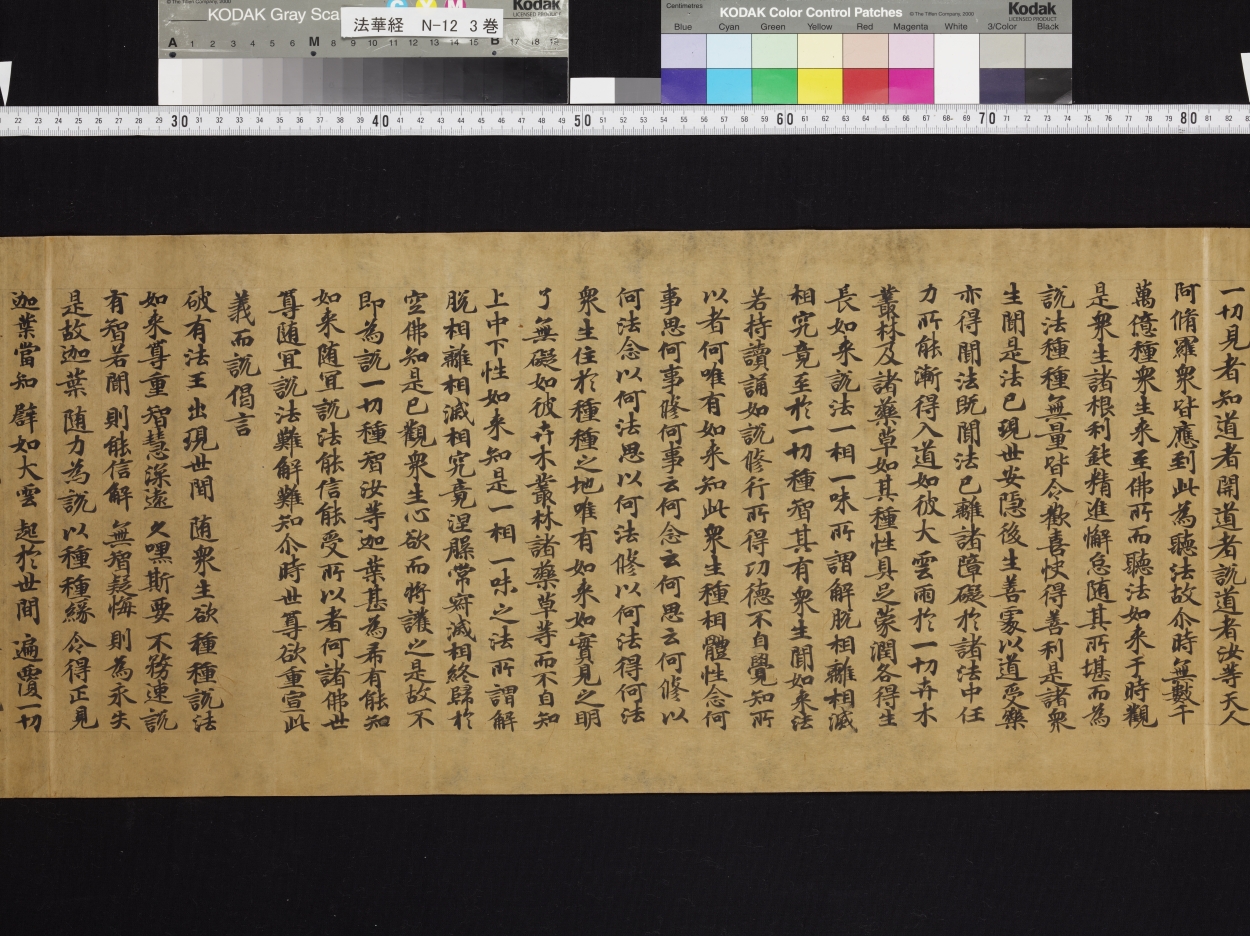 © The Tiffen Company, 2000
KODAK Gray Sca
C Y M
Kodak
LICENSED PRODUCT
法華経 N-12 3巻
A 1 2 3 4 5 6 M 8 9 10 11 12 13 14 15 B 17 18 19
Centimetres
KODAK Color Control Patches
© The Tiffen Company, 2000
Kodak
LICENSED PRODUCT
Blue Cyan Green Yellow Red Magenta White 3/Color Black
22 23 24 25 26 27 28 29 30 31 32 33 34 35 36 37 38 39 40 41 42 43 44 45 46 47 48 49 50 51 52 53 54 55 56 57 58 59 60 61 62 63 64 65 66 67 68 69 70 71 72 73 74 75 76 77 78 79 80 81 82
一切見者知道者開道者說道者汝等天人
阿脩羅衆皆應到此為聽法故尒時無數千
萬億種衆生來至佛所而聽法如来于時觀
是衆生諸根利鈍精進懈怠随其所堪而為
說法種種無量皆令歡喜快得善利是諸衆
生聞是法已現世安隱後生善處以道受樂
亦得聞法既聞法已離諸障礙於諸法中任
力所能漸得入道如彼大雲雨於一切卉木
叢林及諸藥草如其種性具足蒙潤各得生
長如来說法一相一味所謂解脫相離相滅
相究竟至於一切種智其有衆生聞如来法
若持讀誦如說修行所得功德不自覺知所
以者何唯有如来知此衆生種相體性念何
事思何事修何事云何念云何思云何修以
何法念以何法思以何法修以何法得何法
衆生住於種種之地唯有如来如實見之明
了無礙如彼卉木叢林諸藥草等而不自知
上中下性如来知是一相一味之法所謂解
脫相離相滅相究竟涅槃常寂滅相終歸於
空佛知是已觀衆生心欲而將護之是故不
即為說一切種智汝等迦葉甚為希有能知
如来随宜說法能信能受所以者何諸佛世
尊随宜說法難解難知尒時世尊欲重宣此
義而說偈言
破有法王出現世間 随衆生欲種種說法
如来尊重智慧深遠 久嘿斯要不務速說
有智若聞則能信解 無智疑悔則為永失
是故迦葉随力為說 以種種緣令得正見
迦葉當知譬如大雲 起於世間遍覆一切